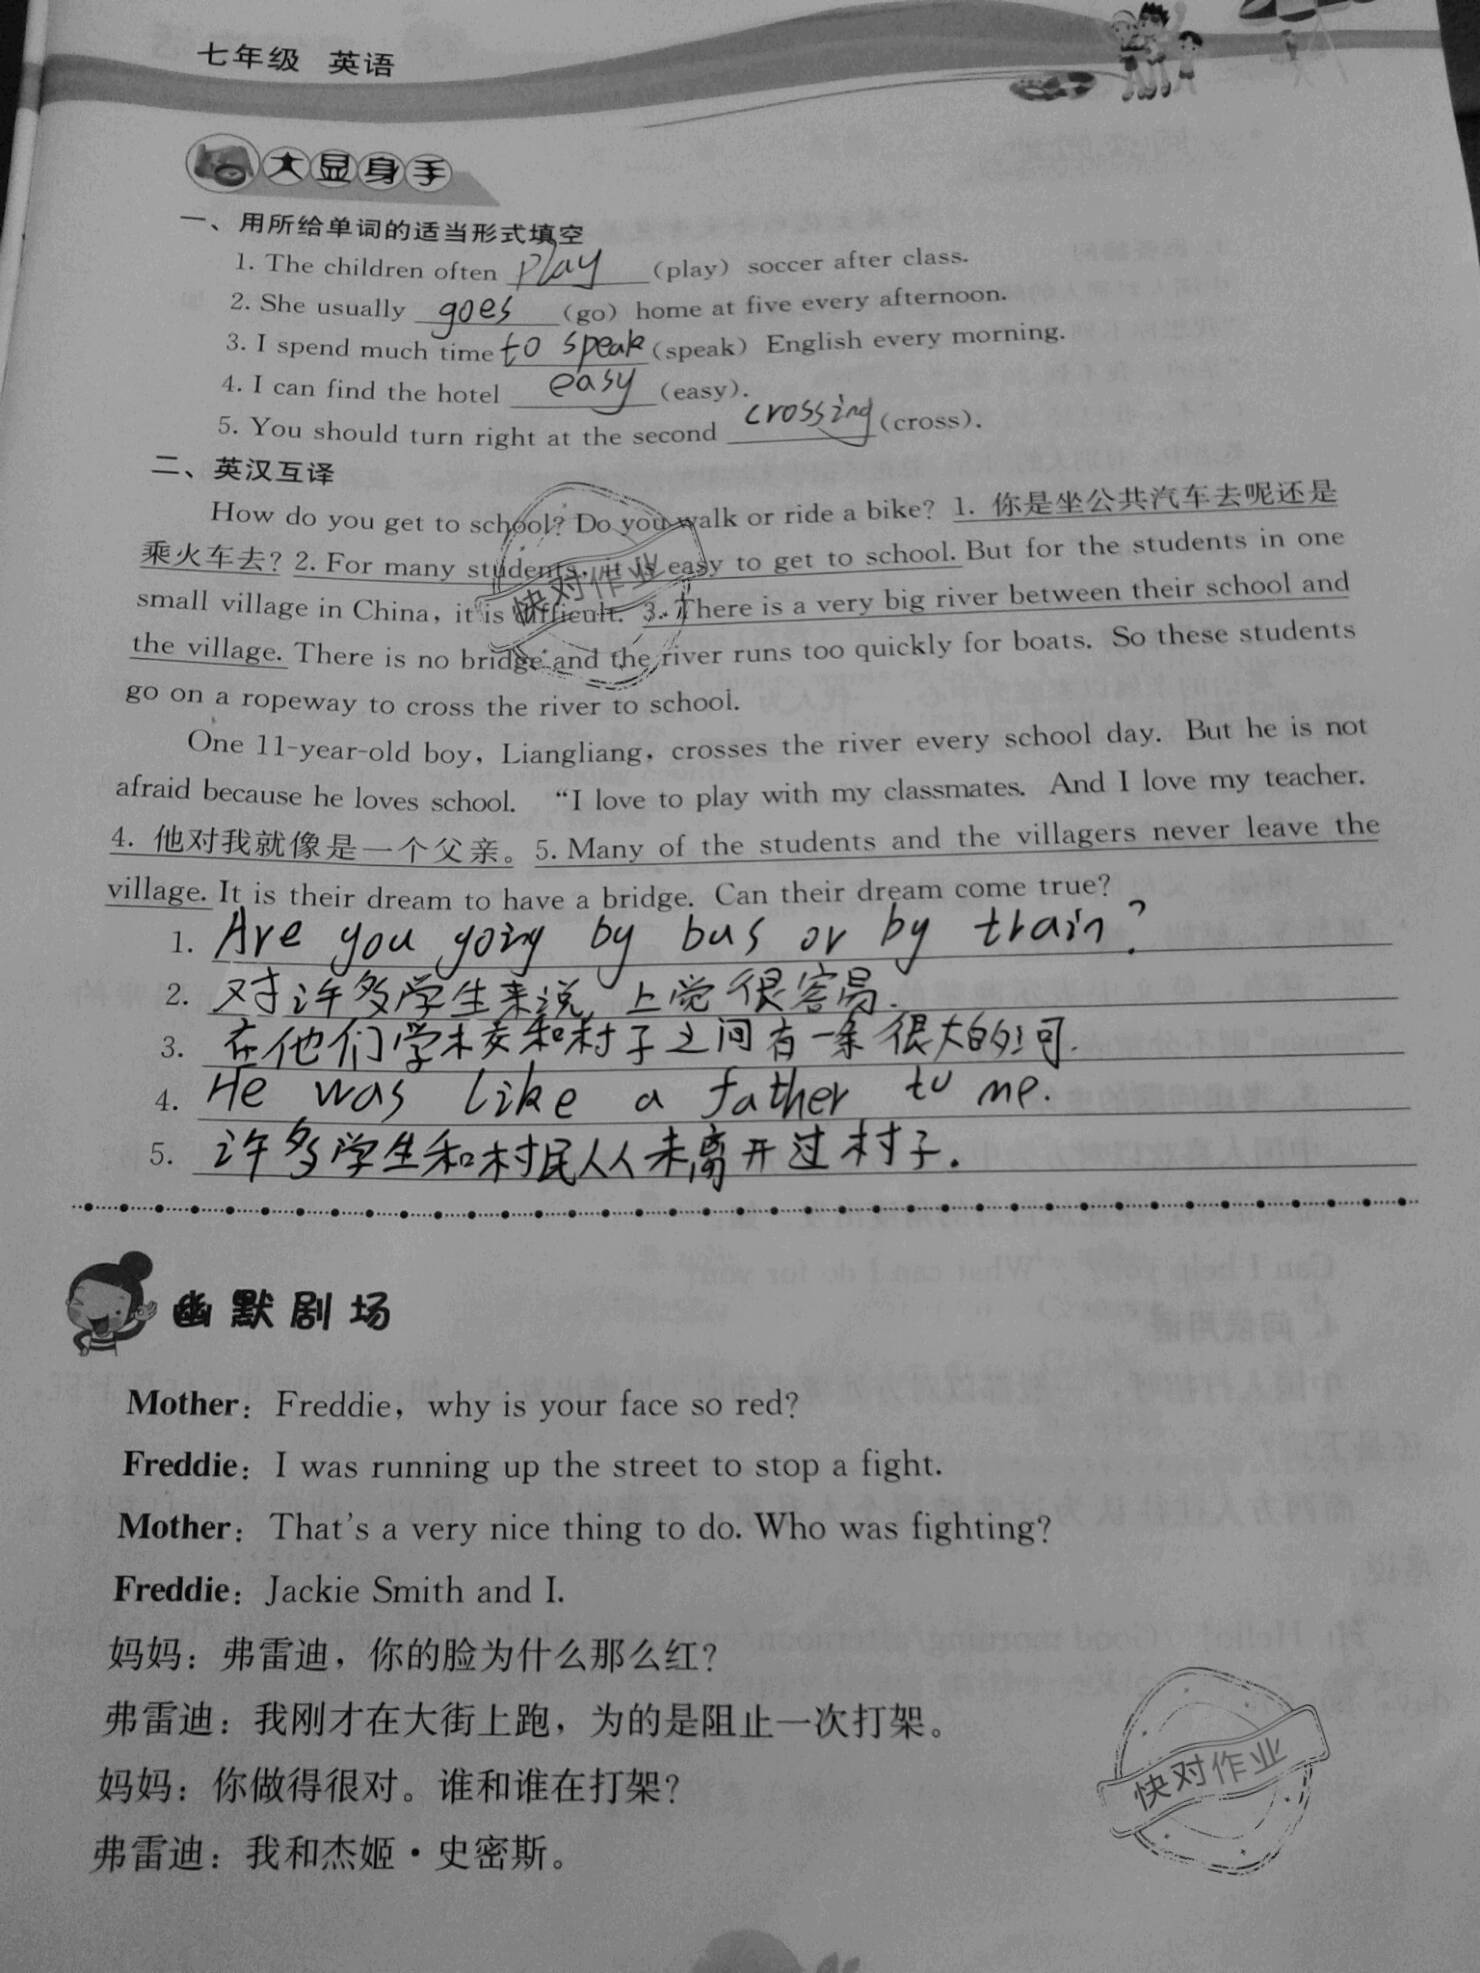 七年级 英语
大显身手
一、用所给单词的适当形式填空
1. The children often play (play) soccer after class.
2. She usually goes (go) home at five every afternoon.
3. I spend much time to speak (speak) English every morning.
4. I can find the hotel easy (easy).
5. You should turn right at the second crossing (cross).
二、英汉互译
How do you get to school? Do you walk or ride a bike? 1. 你是坐公共汽车去呢还是
乘火车去? 2. For many students, it is easy to get to school. But for the students in one
small village in China, it is difficult. 3. There is a very big river between their school and
the village. There is no bridge and the river runs too quickly for boats. So these students
go on a ropeway to cross the river to school.
One 11-year-old boy, Liangliang, crosses the river every school day. But he is not
afraid because he loves school. “I love to play with my classmates. And I love my teacher.
4. 他对我就像是一个父亲。 5. Many of the students and the villagers never leave the
village. It is their dream to have a bridge. Can their dream come true?
1. Are you going by bus or by train?
2. 对许多学生来说, 上觉很容易.
3. 在他们学校和村子之间有一条很大的河.
4. He was like a father to me.
5. 许多学生和村民从未离开过村子.
幽默剧场
Mother: Freddie, why is your face so red?
Freddie: I was running up the street to stop a fight.
Mother: That's a very nice thing to do. Who was fighting?
Freddie: Jackie Smith and I.
妈妈：弗雷迪，你的脸为什么那么红？
弗雷迪：我刚才在大街上跑，为的是阻止一次打架。
妈妈：你做得很对。谁和谁在打架？
弗雷迪：我和杰姬·史密斯。
快对作业
快对作业